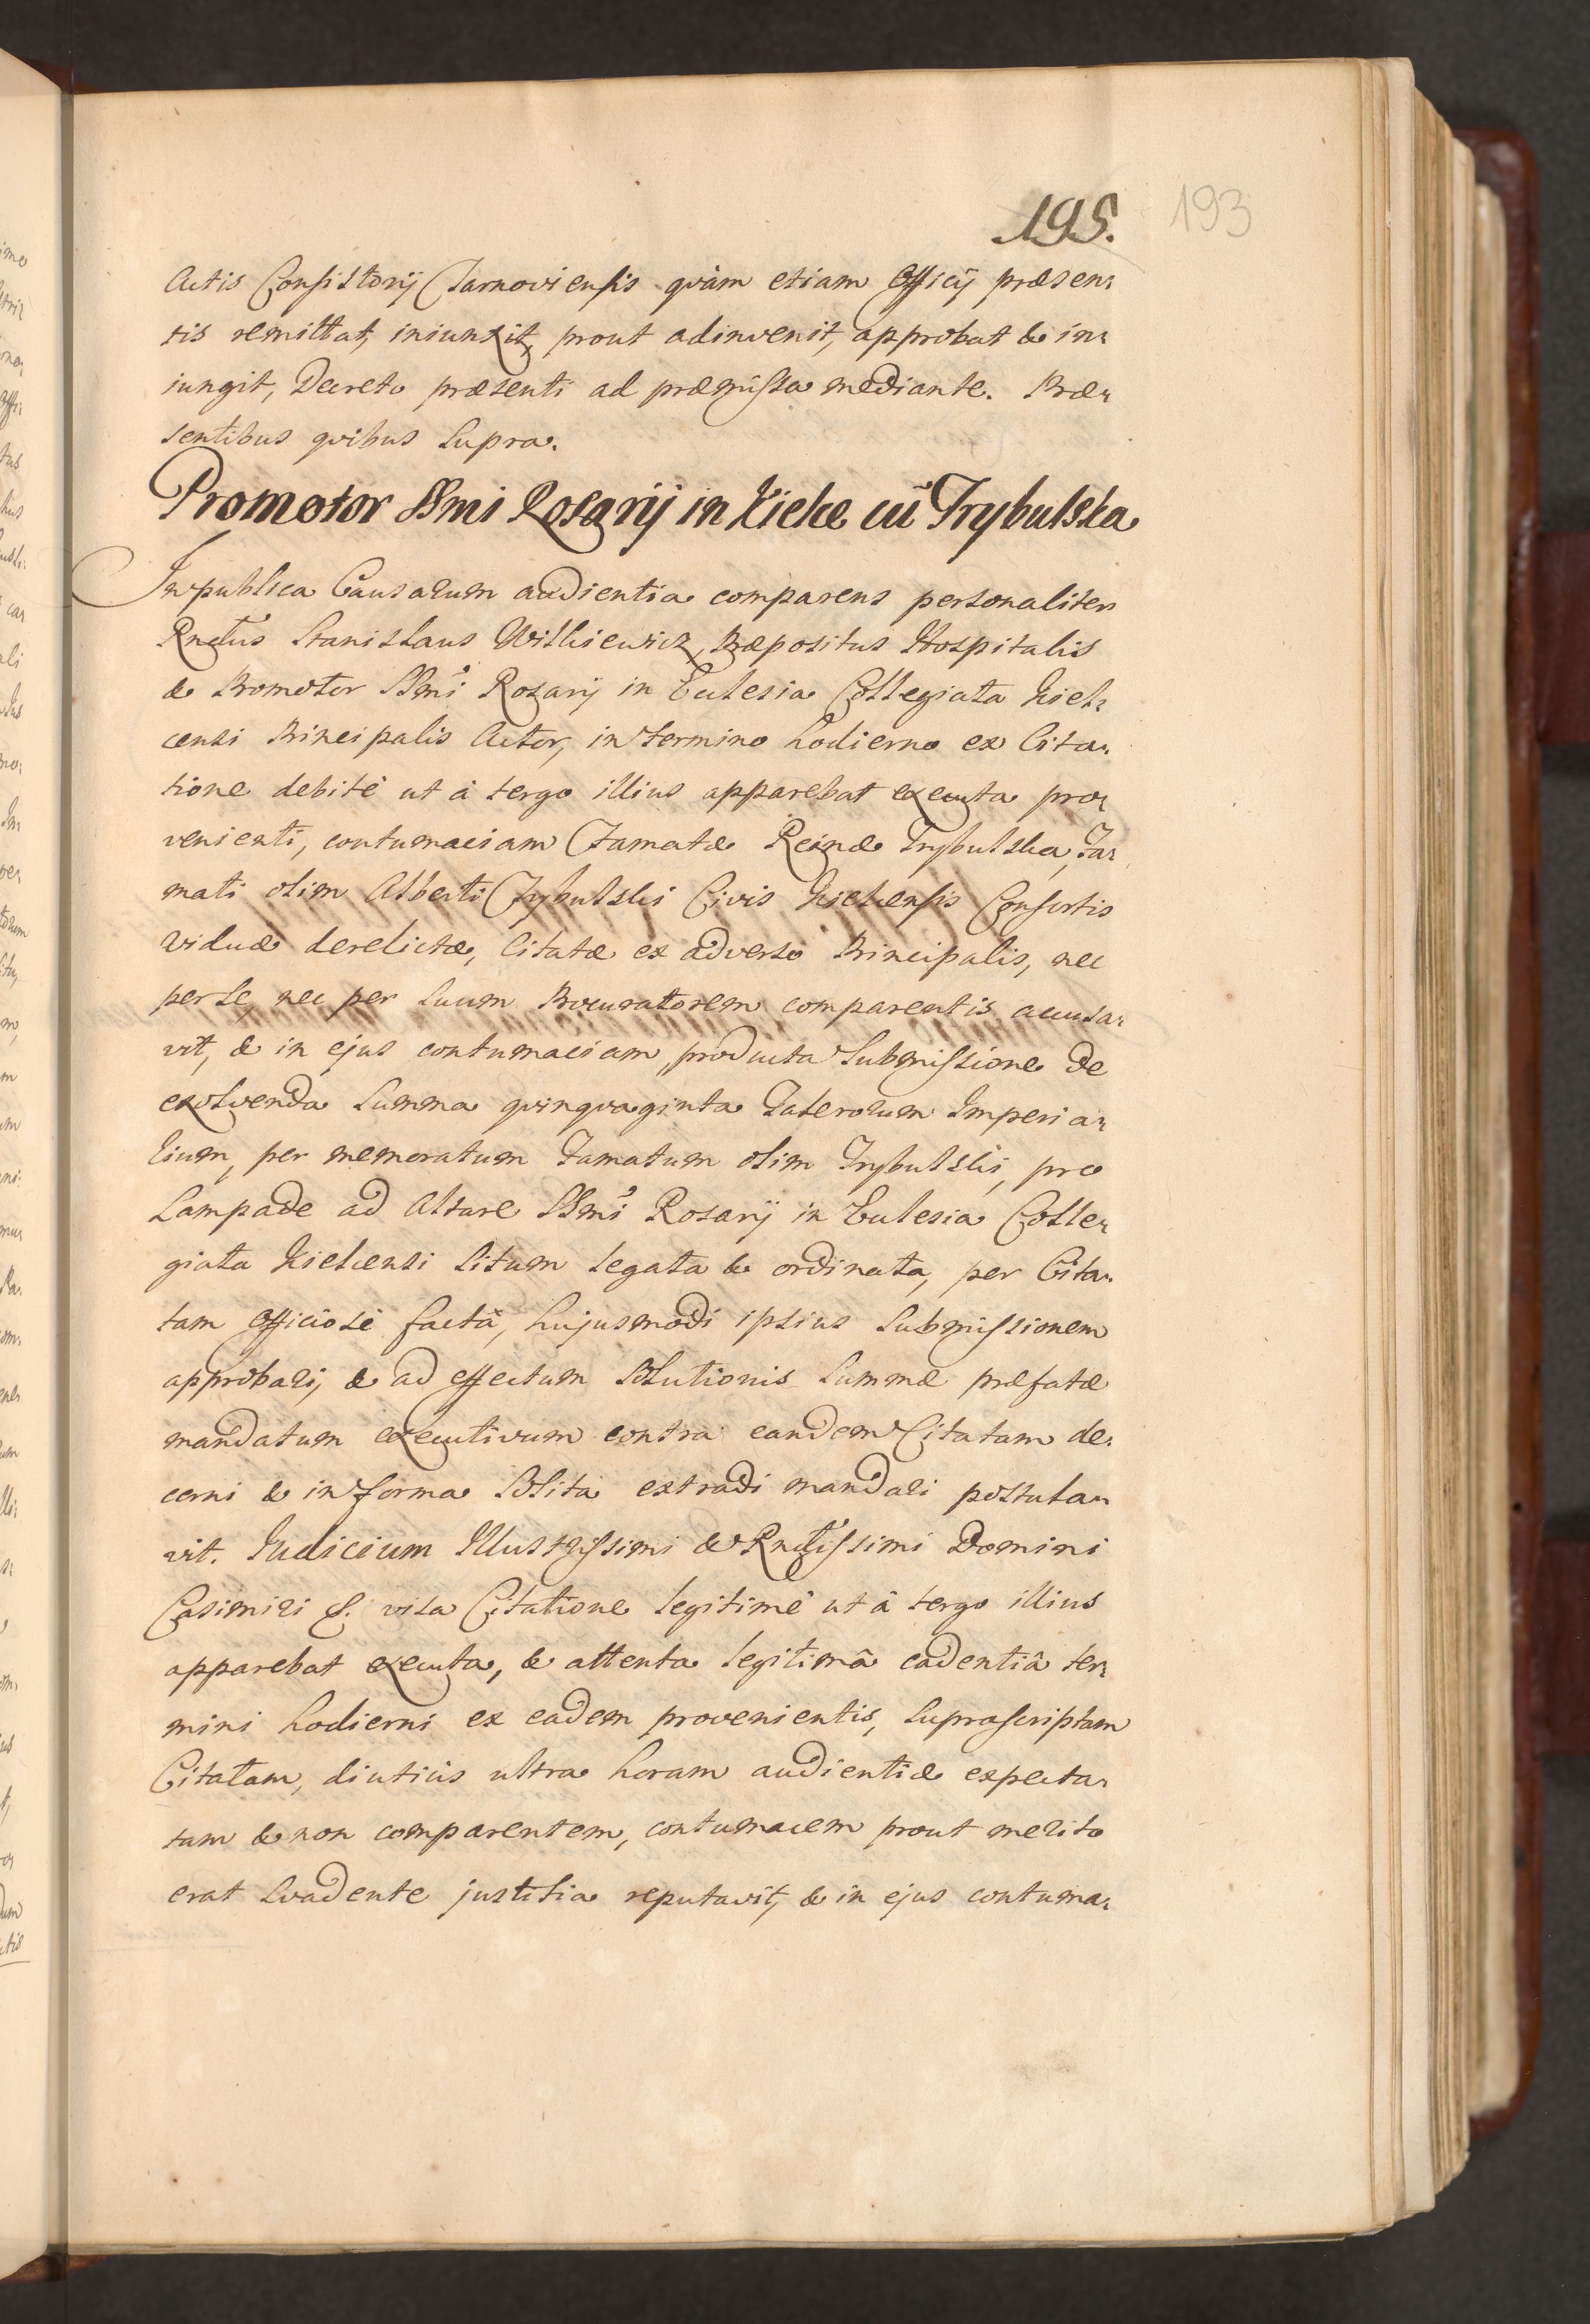 195. 193
Actis Consistorij Tarnoviensis qvàm etiam Officij præsen-
tis remittat, iniunxit, prout adinvenit, approbat & in-
iungit, Decreto præsenti ad præmissa mediante. Præ-
sentibus qvibus supra.
Promotor SSmi Rosarij in Kielce cū Trybulska
In publica Causarum audientia comparens personaliter
Rndus Stanislaus Witkiewicz, Præpositus Hospitalis
& Promotor SSmi Rosarij in Ecclesia Collegiata Kiel-
censi Principalis Actor, in termino hodierno ex Cita-
tione debitè ut à tergo illius apparebat executa pro-
venienti, contumaciam Famatæ Reginæ Trybulska, Fa-
mati olim Alberti Trybulski Civis Kielcensis Consortis
viduæ derelictæ, Citatæ ex adverso Principalis, nec
per se, nec per suum Procuratorem comparentis accusa-
vit, & in ejus contumaciam, producta Submissione de
exolvenda Summa qvinqvaginta Talerorum Imperia-
lium, per memoratum Famatum olim Trybulski, pro
Lampade ad Altare SSmi Rosarij in Ecclesia Colle-
giata Kielcensi situm legata & ordinata, per Cita-
tam officiosè factâ, hujusmodi ipsius Submissionem
approbari, & ad effectum Solutionis Summæ præfatæ
mandatum executivum contra eandem Citatam de-
cerni & in forma Solita extradi mandari postula-
vit. Iudicium Illustrissimi & Rndissimi Domini
Casimiri &. visa Citatione legitimè ut à tergo illius
apparebat executa, & attenta legitimâ cadentiâ ter-
mini hodierni ex eadem provenientis, Suprascriptam
Citatam, diutius ultra horam audientiæ expecta-
tam & non comparentem, contumacem prout merito
erat svadente justitia reputavit, & in ejus contuma-